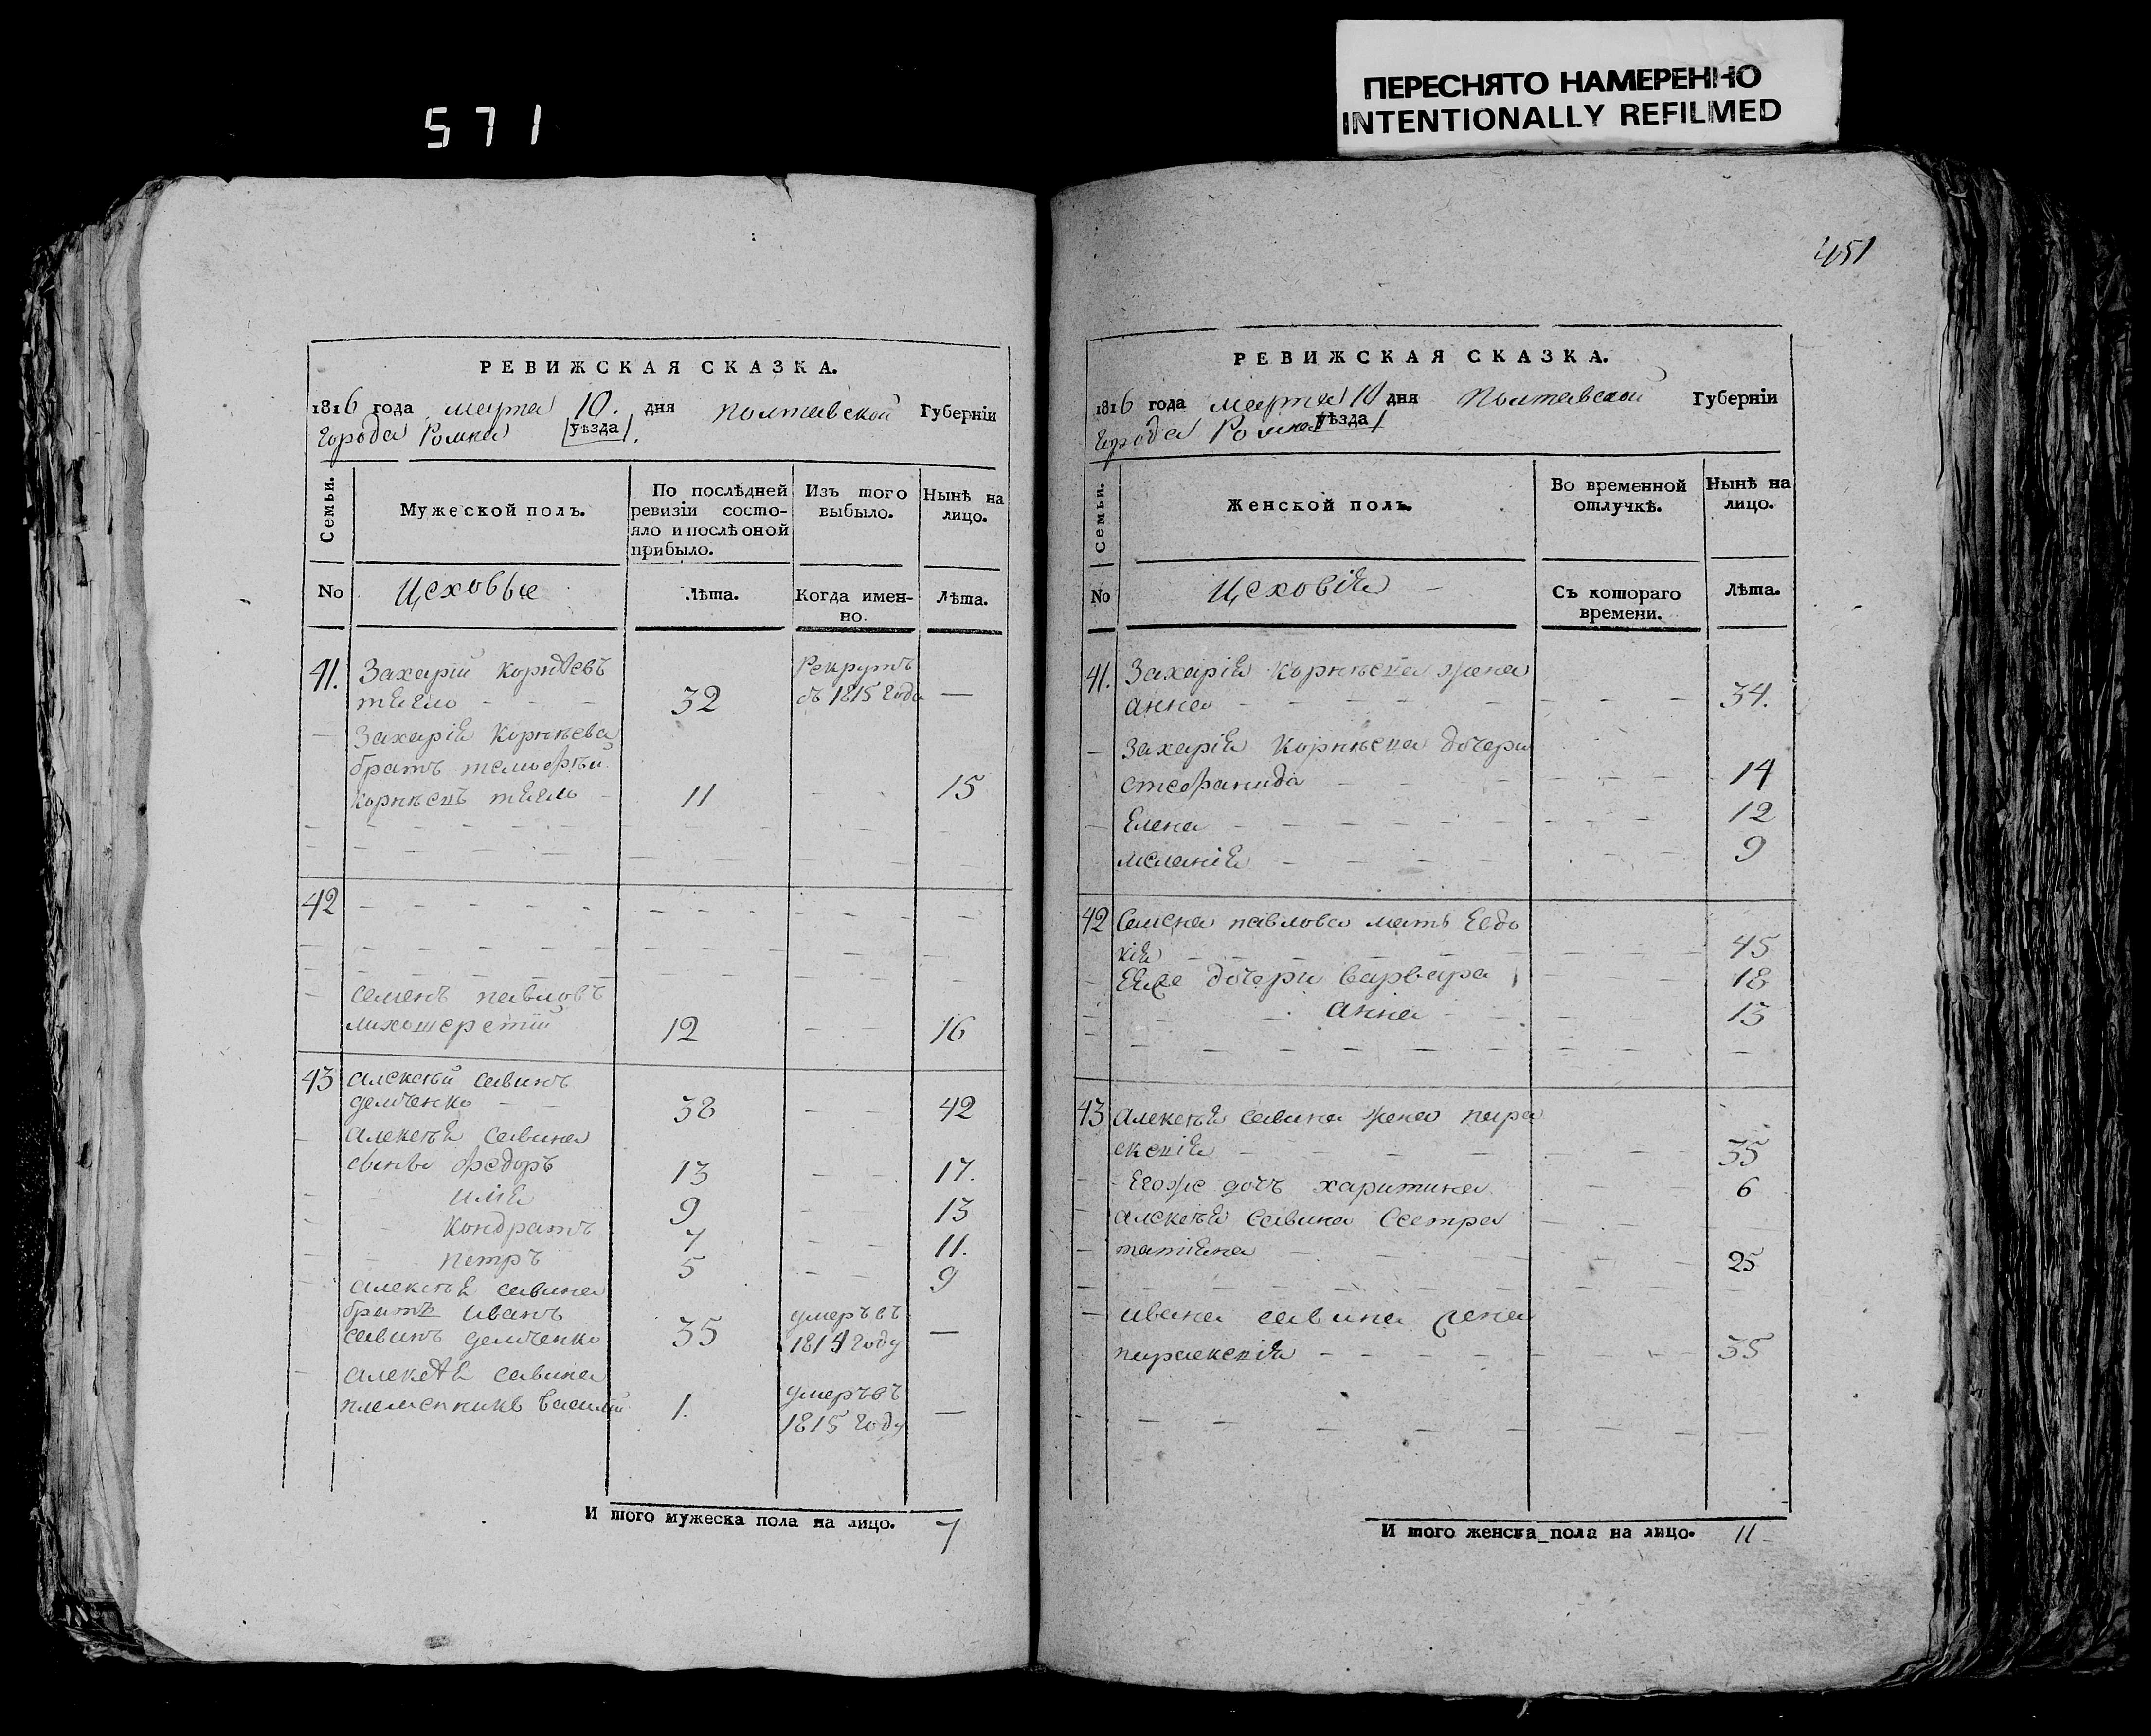 ПЕРЕСНЯТО НАМЕРЕННО
INTENTIONALLY REFILMED
571
451
РЕВИЖСКАЯ СКАЗКА.
1816 года марта 10. дня полтавской Губерніи
Города Ромна уѣзда
Семьи.
Мужеской полъ.
По послѣдней ревизіи состояло и послѣ оной прибыло.
Изъ того выбыло.
Нынѣ на лицо.
No
Цеховые
Лѣта.
Когда именно.
Лѣта.
41. Захарій Корнѣевъ Рекрутъ
32 съ 1815 года —
Захарія Корнѣева
братъ тимофѣй
корнѣевъ 11 15
42
семенъ павловъ
12 16
43 алексѣй савинъ
демченко 38 42
алексѣя савина
сыны федоръ 13 17.
илія 9 13
кондратъ 7 11.
петръ 5 9
алексѣя савина
братъ иванъ умеръ въ
савинъ демченко 35 1814 году —
алексѣя савина
племенникъ василій 1. умеръ въ
1815 году —
И того мужеска пола на лицо. 7
РЕВИЖСКАЯ СКАЗКА.
1816 года марта 10 дня Полтавской Губерніи
Города Ромна уѣзда
Семьи.
Женской полъ.
Во временной отлучкѣ.
Нынѣ на лицо.
No
Цеховія
Съ котораго времени.
Лѣта.
41. Захарія Корнѣева жена
анна 34.
Захарія Корнѣева дочери
стефанида 14
Елена 12
меланія 9
42 Семена павлова мать Евдо
кія 45
Ея же дочери варвара 18
анна 13
43 алексѣя савина жена пара
скевія 35
Егоже дочъ харитина 6
алексѣя савина сестра
татіяна 25
ивана савина жена
параскевія 35
И того женска пола на лицо. 11